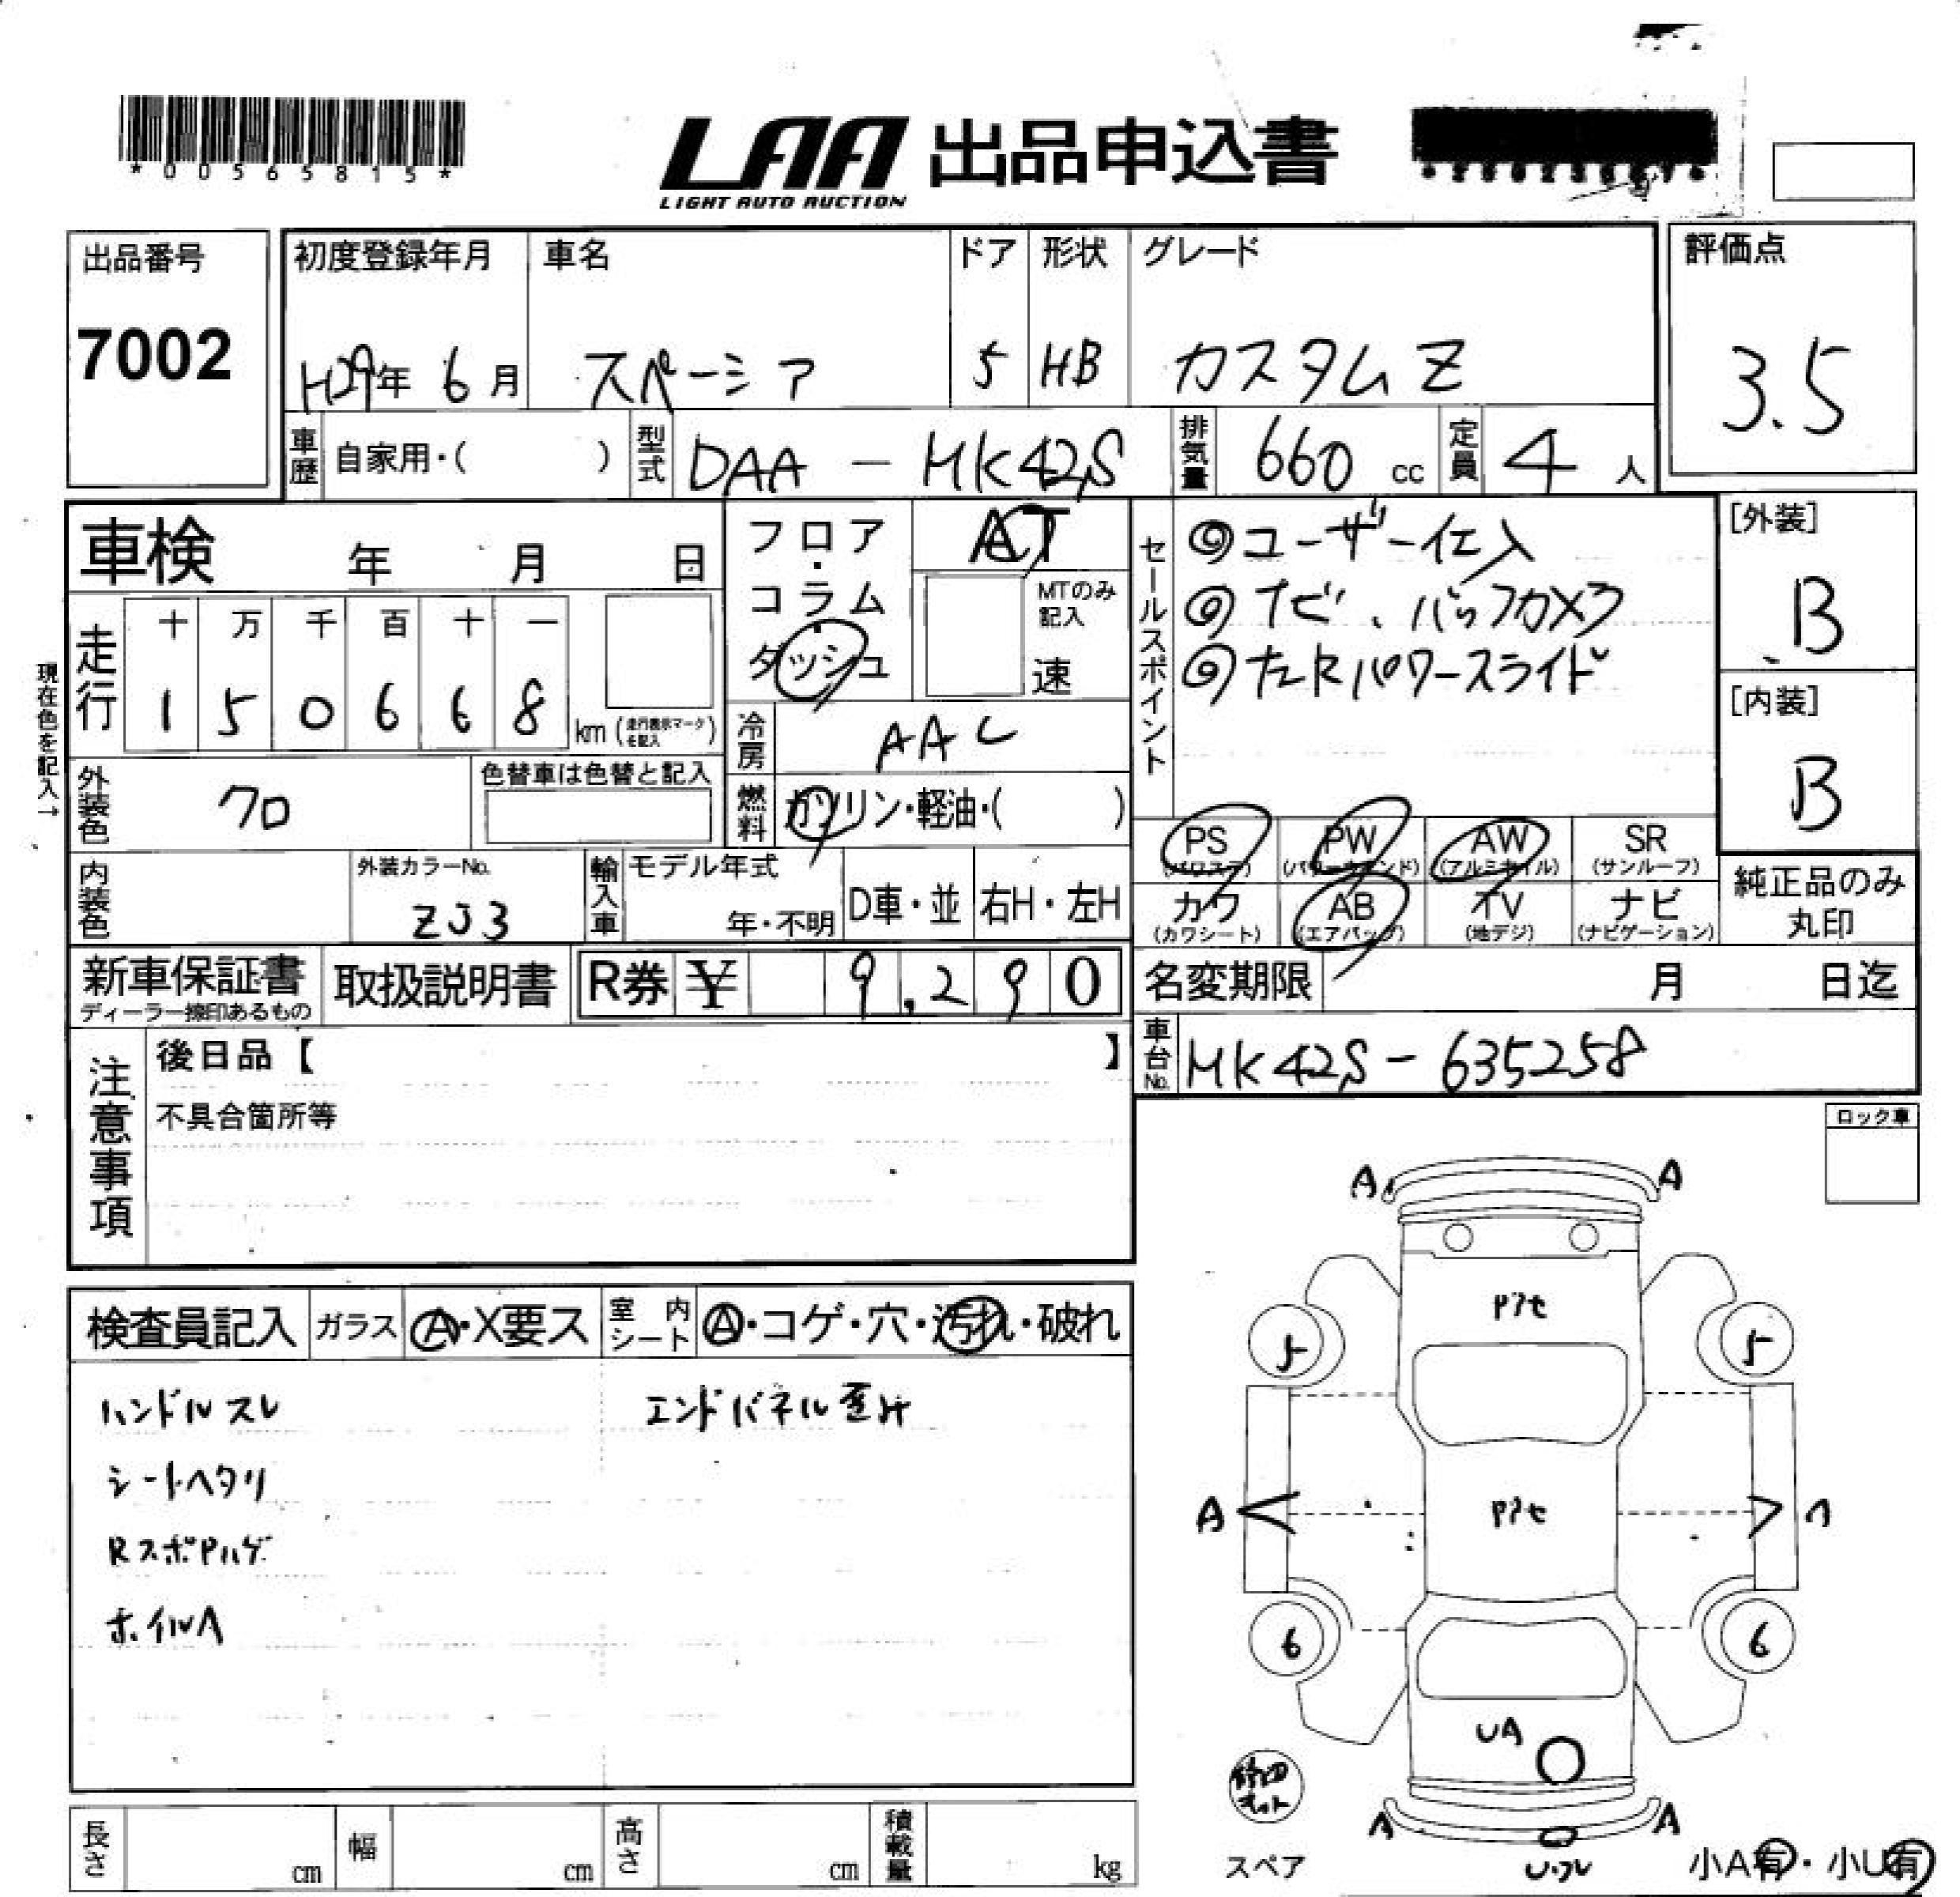 *00565815*
LAA 出品申込書
LIGHT AUTO AUCTION
出品番号
7002
初度登録年月
H29年 6月
車名
スペーシア
ドア
5
形状
HB
グレード
カスタムZ
評価点
3.5
車歴 自家用・( )
型式 DAA - MK42S
排気量 660 cc
定員 4 人
車検 年 月 日
走行
十 万 千 百 十 一
1 5 0 6 6 8 km (走行表示マークを記入)
現在色を記入→
外装色 クロ
色替車は色替と記入
内装色
外装カラーNo.
ZJ3
フロア・コラム・ダッシュ
AT
MTのみ記入
速
冷房 AAC
燃料 ガソリン・軽油・( )
輸入車 モデル年式
年・不明
D車・並
右H・左H
セールスポイント
◎ユーザー仕入
◎ナビ、バックカメラ
◎左Rパワースライド
[外装]
B
[内装]
B
PS (パワステ)
PW (パワーウインド)
AW (アルミホイル)
SR (サンルーフ)
カワ (カワシート)
AB (エアバッグ)
TV (地デジ)
ナビ (ナビゲーション)
純正品のみ丸印
新車保証書
ディーラー捺印あるもの
取扱説明書
R券 ¥ 9,290
名変期限 月 日迄
車台No. MK42S-635258
注意事項
後日品【 】
不具合箇所等
ロック車
検査員記入
ガラス A・X要ス
室内シート A・コゲ・穴・汚れ・破れ
ハンドルスレ
シートヘタリ
RスポPハゲ
ホイルA
エンドパネル歪み
A A
Pアセ
5 5
A
Pアセ
6 6
UA
A A
スペア
小A有・小U有
長さ cm
幅 cm
高さ cm
積載量 kg